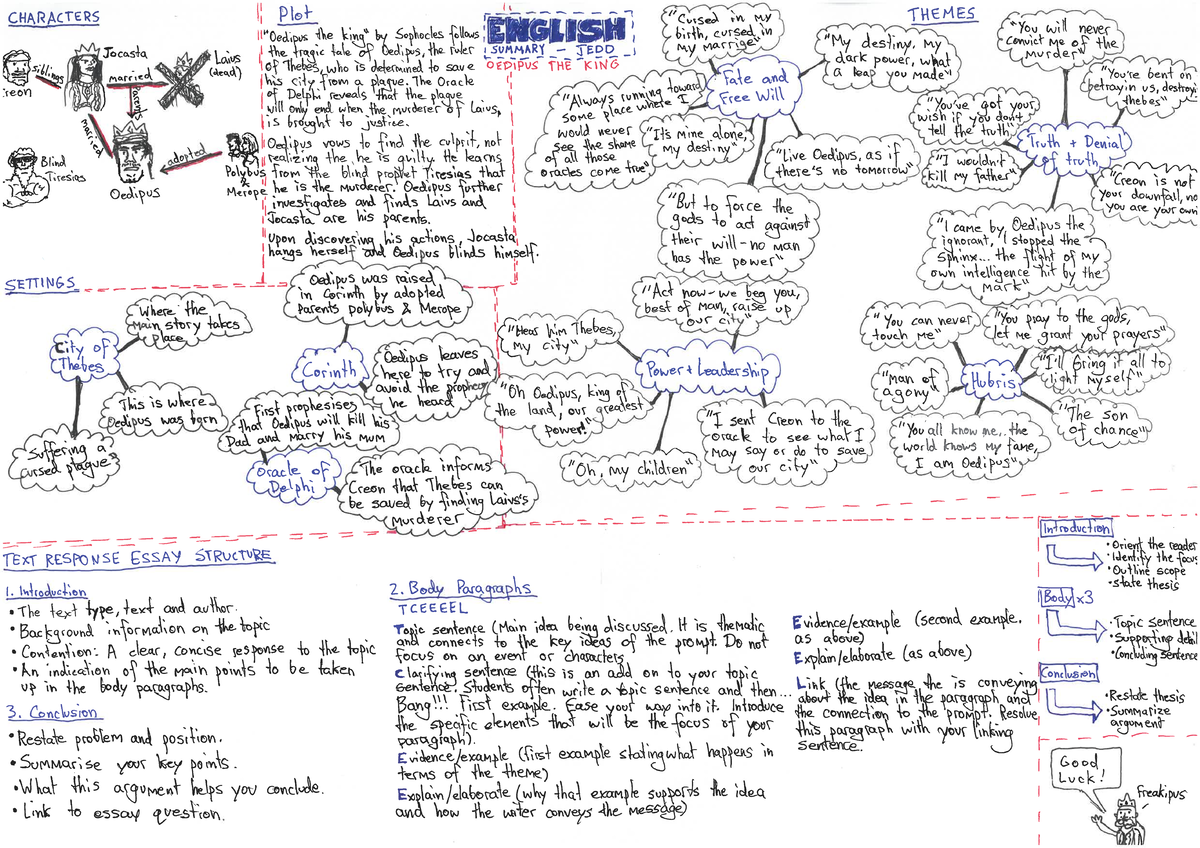 CHARACTERS
Siblings
Jocasta
married
Laius
(dead)
parents
married
adopted
Blind
Tiresias
Oedipus
Polybus
& Merope
Plot
"Oedipus the king" by Sophocles follows
the tragic tale of Oedipus, the ruler
of Thebes, who is determined to save
his city from a plague. The Oracle
of Delphi reveals that the plague
will only end when the murderer of Laius,
is brought to justice.
Oedipus vows to find the culprit, not
realizing the he is guilty. He learns
from the blind prophet Tiresias that
he is the murderer. Oedipus further
investigates and finds Laius and
Jocasta are his parents.
Upon discovering his actions, Jocasta
hangs herself and Oedipus blinds himself.
ENGLISH
SUMMARY – JEDD
OEDIPUS THE KING
THEMES
Fate and
Free Will
"Cursed in my
birth, cursed in
my marrige"
"My destiny, my
dark power, what
a leap you made"
"Always running toward
some place where I
would never
see the shame
of all those
oracles come true"
"It's mine alone,
my destiny"
"Live Oedipus, as if
there's no tomorrow"
"But to force the
gods to act against
their will – no man
has the power"
Truth + Denial
of truth
"You will never
convict me of the
murder"
"You're bent on
betrayin us, destroy
thebes"
"You've got your
wish if you don't
tell the truth"
"I wouldn't
kill my father"
"Creon is not
your downfall, no
you are your own
"I came by, Oedipus the
ignorant, I stopped the
Sphinx... the flight of my
own intelligence hit by the
mark"
SETTINGS
City of
Thebes
Where the
main story takes
place
This is where
Oedipus was born
Suffering a
cursed plague"
Corinth
Oedipus was raised
in Corinth by adopted
parents polybus & Merope
Oedipus leaves
here to try and
avoid the prophecy
he heard
Oracle of
Delphi
First prophesises
that Oedipus will kill his
Dad and marry his mum
The oracle informs
Creon that Thebes can
be saved by finding Laius's
murderer
Power + Leadership
"Act now – we beg you,
best of man, raise up
our city"
"Hear him Thebes,
my city"
"Oh Oedipus, king of
the land, our greatest
power!"
"Oh, my children"
"I sent Creon to the
oracle to see what I
may say or do to save
our city"
Hubris
"You can never
touch me"
"You pray to the gods,
let me grant your prayers"
"I'll bring it all to
light myself"
"Man of
agony"
"The son
of chance"
"You all know me... the
world knows my fame,
I am Oedipus"
TEXT RESPONSE ESSAY STRUCTURE
1. Introduction
• The text type, text and author.
• Background information on the topic
• Contention: A clear, concise response to the topic
• An indication of the main points to be taken
up in the body paragraphs.
3. Conclusion
• Restate problem and position.
• Summarise your key points.
• What this argument helps you conclude.
• Link to essay question.
2. Body Paragraphs
TCEEEEL
Topic sentence (Main idea being discussed. It is thematic
and connects to the key ideas of the prompt. Do not
focus on an event or characters
Clarifying sentence (this is an add on to your topic
sentence. Students often write a topic sentence and then...
Bang!!! First example. Ease your way into it. Introduce
the specific elements that will be the focus of your
paragraph).
Evidence/example (first example stating what happens in
terms of the theme)
Explain/elaborate (why that example supports the idea
and how the writer conveys the message)
Evidence/example (second example.
as above)
Explain/elaborate (as above)
Link (the message the is conveying
about the idea in the paragraph and
the connection to the prompt. Resolve
this paragraph with your linking
sentence.
Introduction
• Orient the reader
• Identify the focus
• Outline scope
• State thesis
Body x3
• Topic sentence
• Supporting
• Concluding sentence
Conclusion
• Restate thesis
• Summarize
argument
Good
Luck!
Freakipus